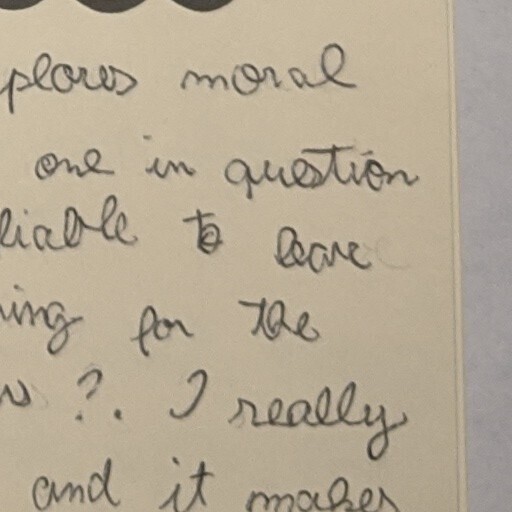 plores moral
one in question
liable to leave
ing for the
?. I really
and it makes